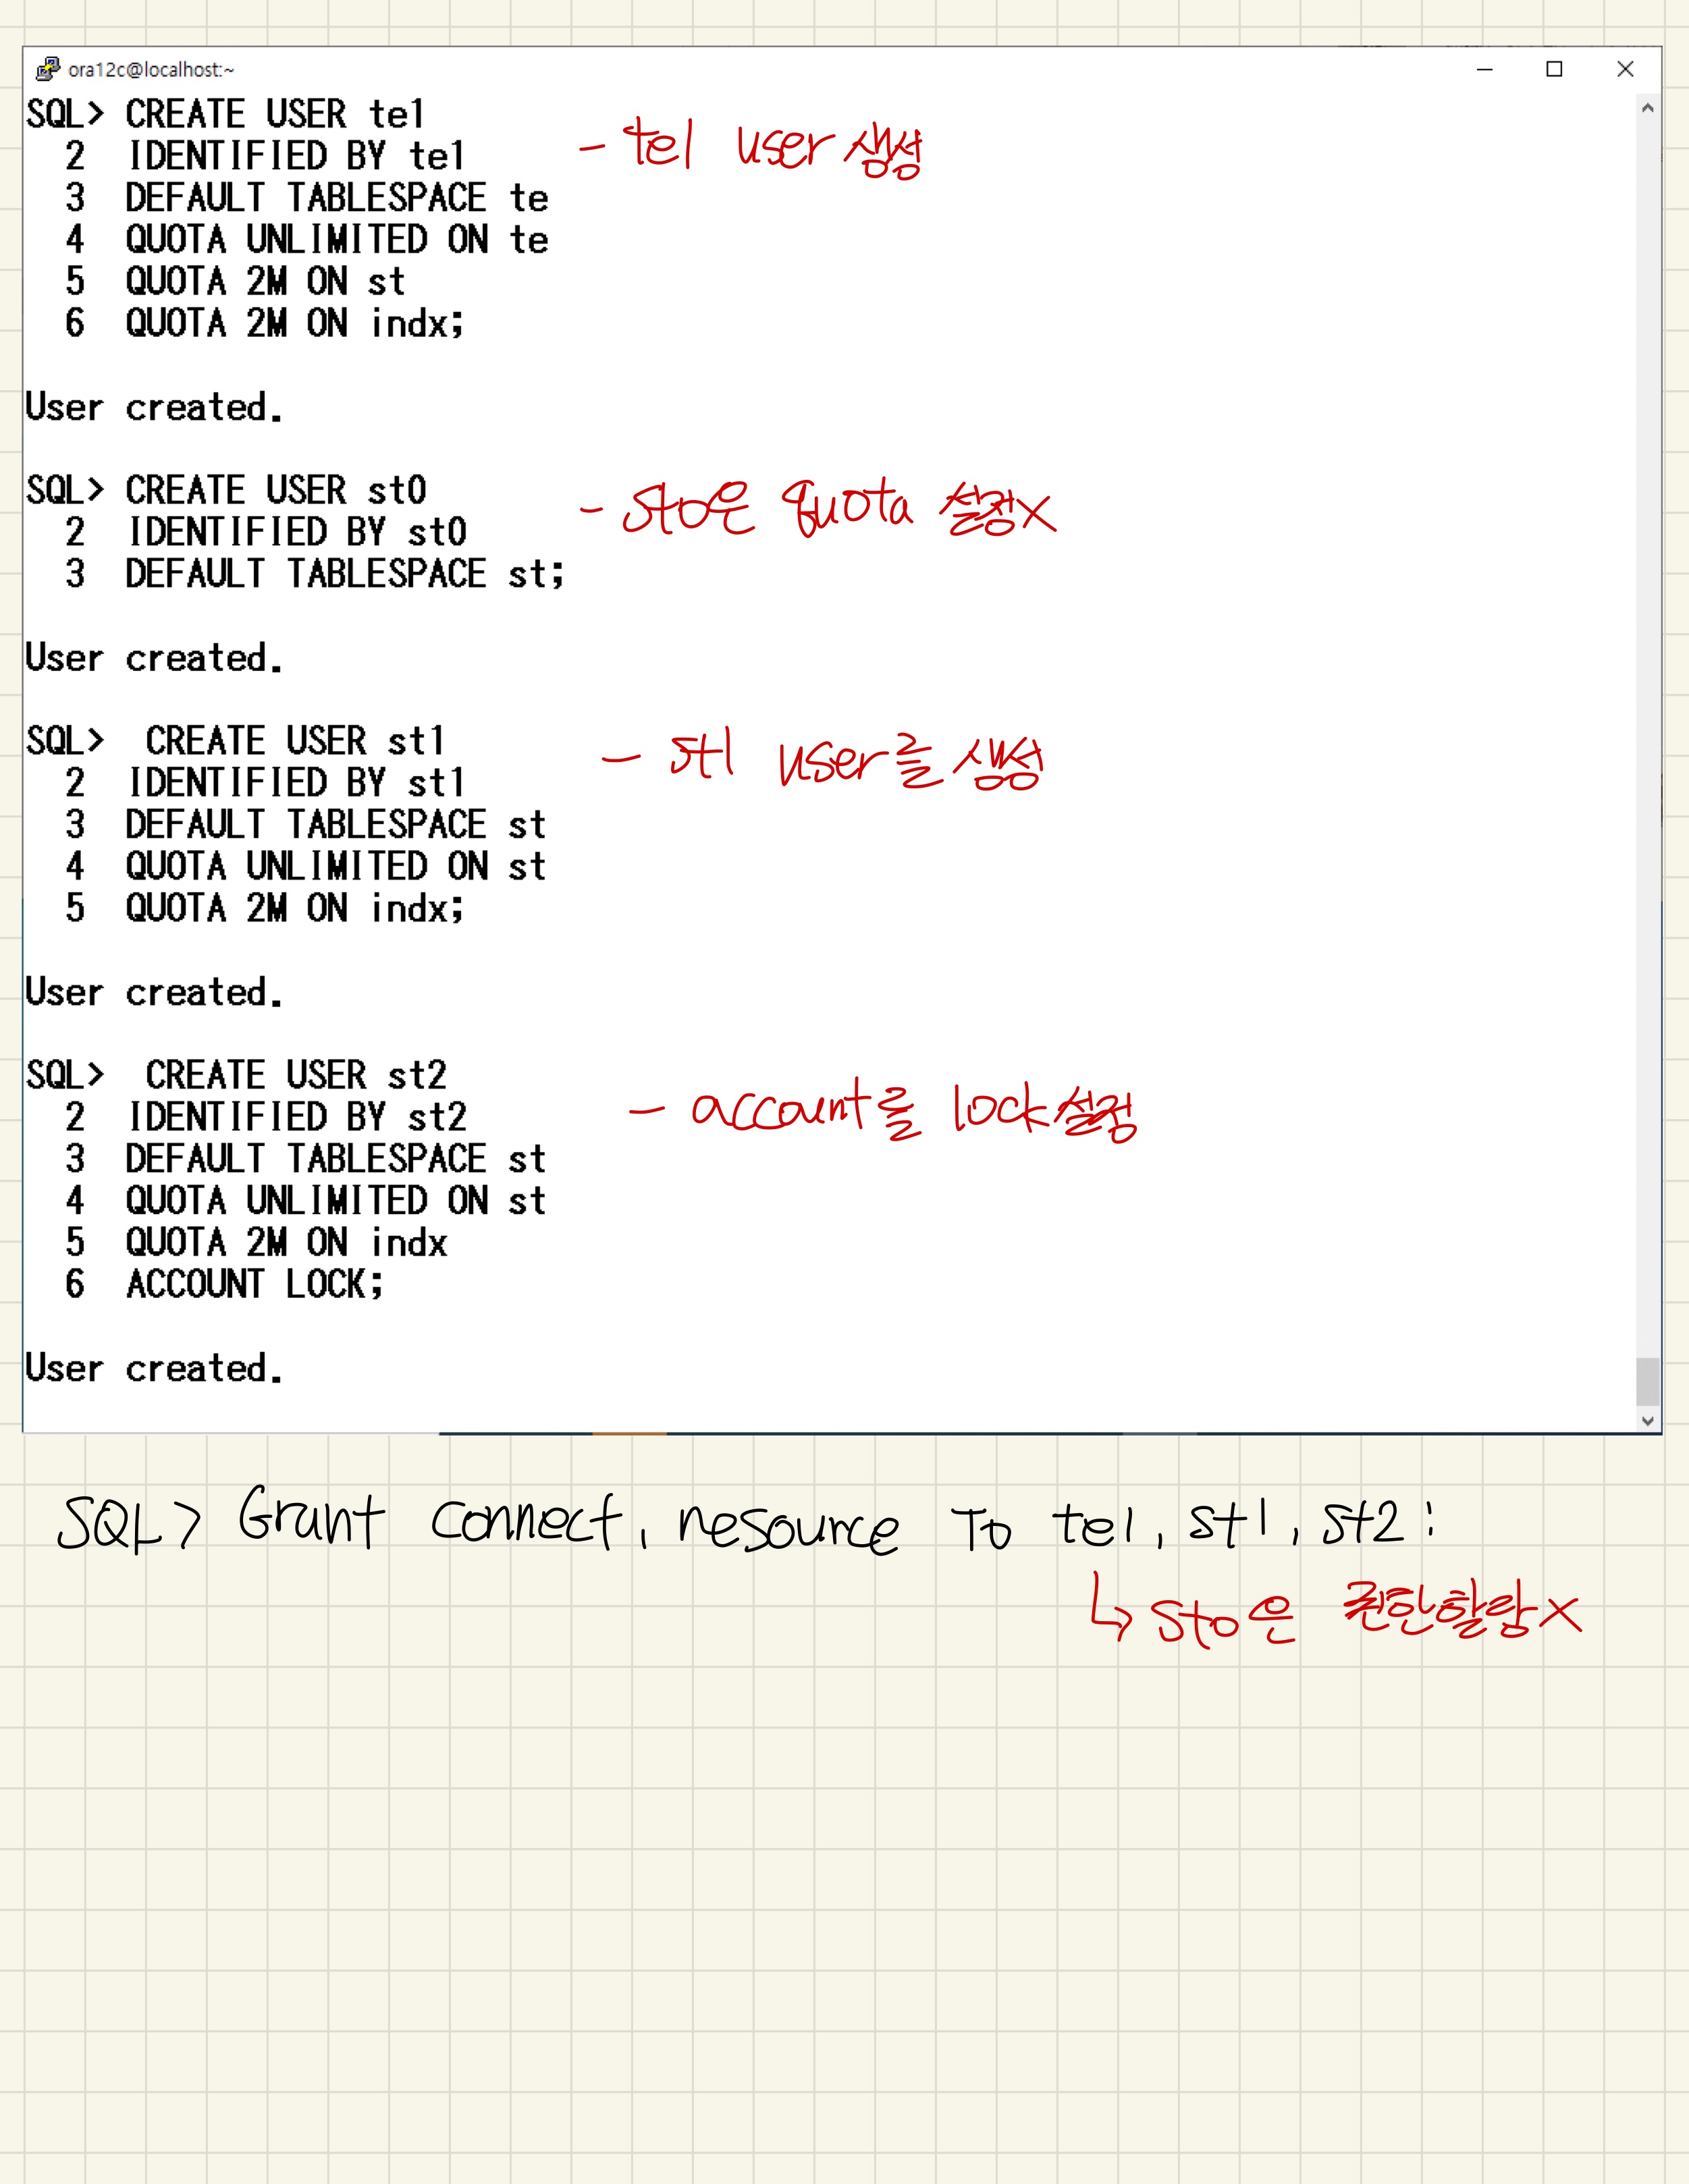 ora12c@localhost:~
SQL> CREATE USER te1
2 IDENTIFIED BY te1
- te1 user 생성
3 DEFAULT TABLESPACE te
4 QUOTA UNLIMITED ON te
5 QUOTA 2M ON st
6 QUOTA 2M ON indx;
User created.
SQL> CREATE USER st0
- st0은 quota 설정X
2 IDENTIFIED BY st0
3 DEFAULT TABLESPACE st;
User created.
SQL> CREATE USER st1
- st1 user를 생성
2 IDENTIFIED BY st1
3 DEFAULT TABLESPACE st
4 QUOTA UNLIMITED ON st
5 QUOTA 2M ON indx;
User created.
SQL> CREATE USER st2
2 IDENTIFIED BY st2
- account를 lock설정
3 DEFAULT TABLESPACE st
4 QUOTA UNLIMITED ON st
5 QUOTA 2M ON indx
6 ACCOUNT LOCK;
User created.
SQL> Grant connect, resource To te1, st1, st2;
↳ st0은 권한할당X